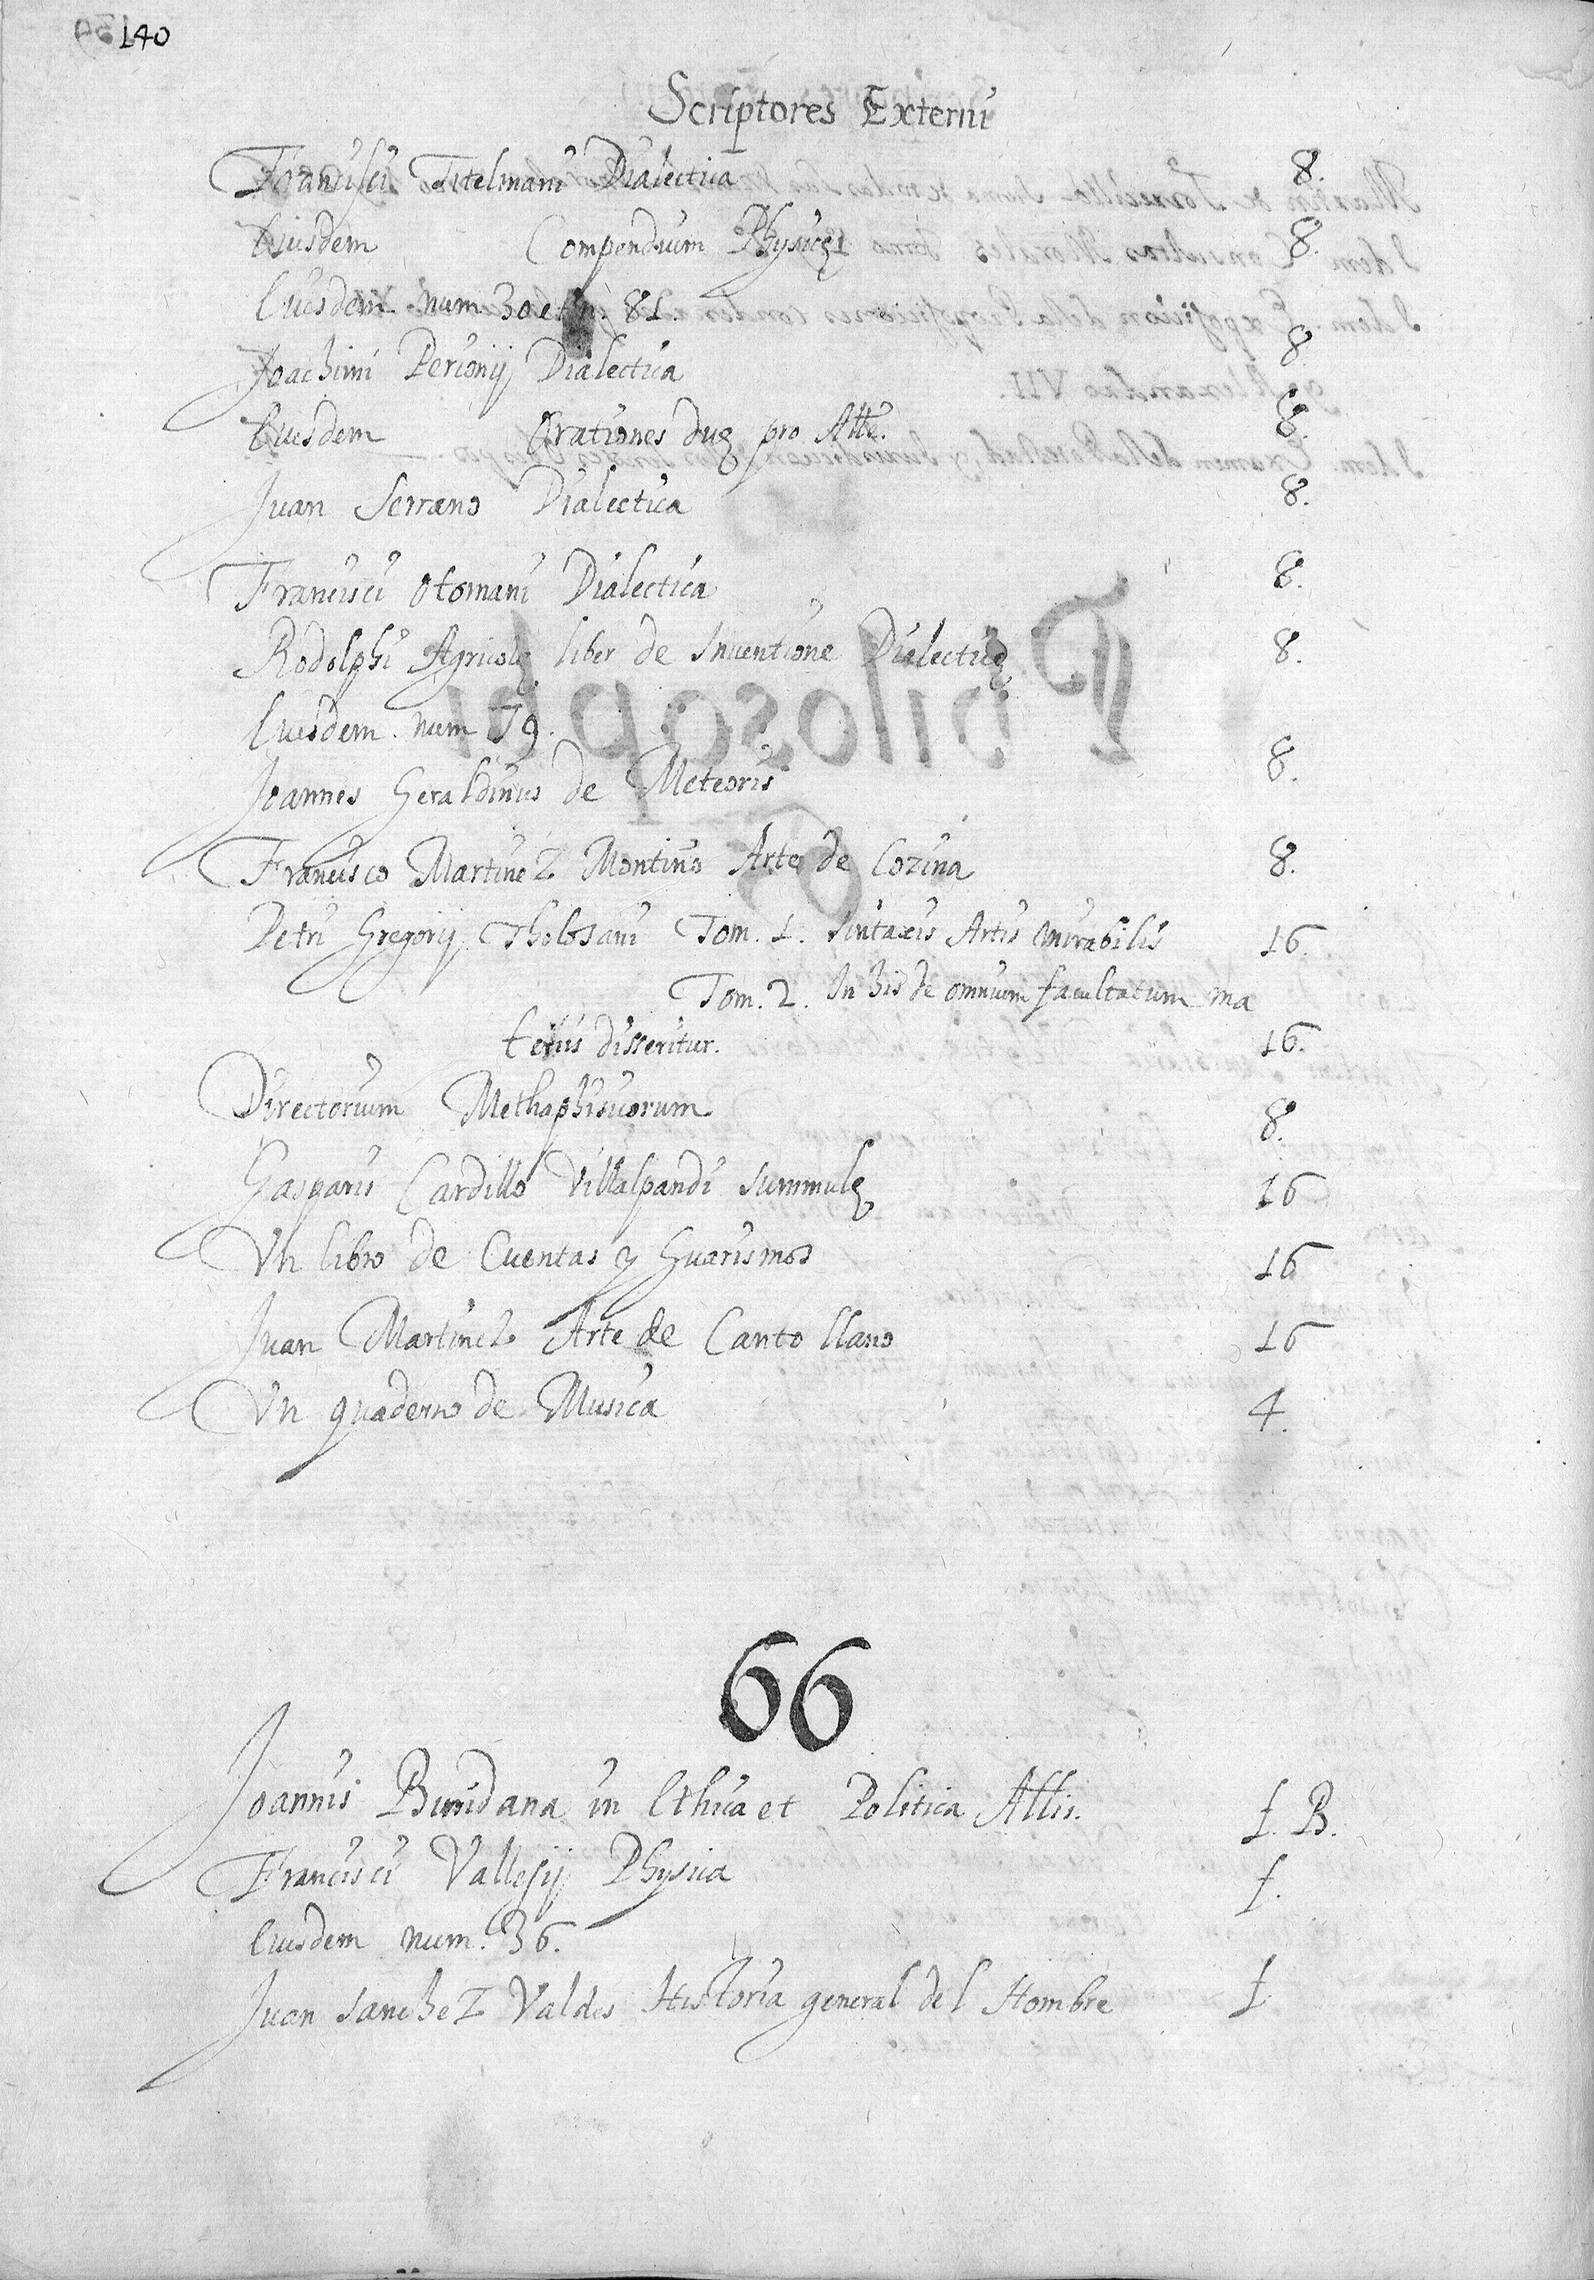 140
Scriptores Externi
Francisci Titelmani Dialectica 8.
Eiusdem Compendium Physicę 8.
Eiusdem num 30 et 81.
Joachimi Perionij Dialectica 8
Eiusdem Orationes duę pro Atte. 8.
Juan Serrano Dialectica 8.
Francisci Otomani Dialectica 8.
Rodolphi Agricolę liber de Inuentione Dialecticę 8.
Eiusdem. num 79.
Joannes Geraldinus de Meteoris 8.
Francisco Martinez Montino Arte de Cozina 8.
Petri Gregorij Tholosani Tom. 1. Sintaxis Artis mirabilis 16.
Tom. 2. In his de omnium facultatum ma
teriis disseritur. 16.
Directorium Methaphisicorum 8.
Gasparis Cardillo Villalpandi Summulę 16
Vn libro de Cuentas y Guarismos 16
Juan Martinez Arte de Canto llano 16
Vn quaderno de Musica 4.
66
Joannis Buridana in Ethica et Politica Attis. f. B.
Francisci Vallesij Physica f.
Eiusdem num. 36.
Juan Sanchez Valdes Historia general del Hombre f.